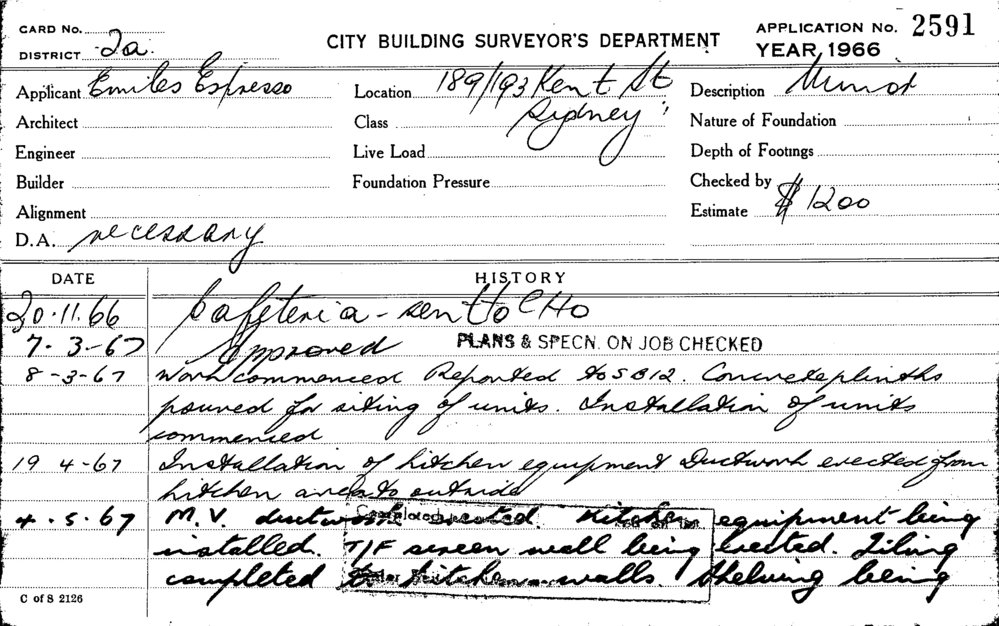 CARD No.
DISTRICT 2a.
CITY BUILDING SURVEYOR'S DEPARTMENT
APPLICATION No. 2591
YEAR, 1966
Applicant Emiles Espresso
Location 189/193 Kent St Sydney
Description Minor
Architect
Class
Nature of Foundation
Engineer
Live Load
Depth of Footings
Builder
Foundation Pressure
Checked by
Alignment
Estimate $1200
D.A. necessary
DATE HISTORY
20.11.66 Cafeteria - sent to CHO
7.3-67 Approved PLANS & SPECN. ON JOB CHECKED
8-3-67 Work commenced Reported to SB12. Concrete plinths
poured for siting of units. Installation of units
commenced
19 4-67 Installation of kitchen equipment Ductwork erected from
kitchen area to outside
4.5.67 M.V. ductwork erected. Kitchen equipment being
installed. T/F screen wall being erected. Tiling
completed to kitchen walls. Shelving being
Completed
C of S 2126